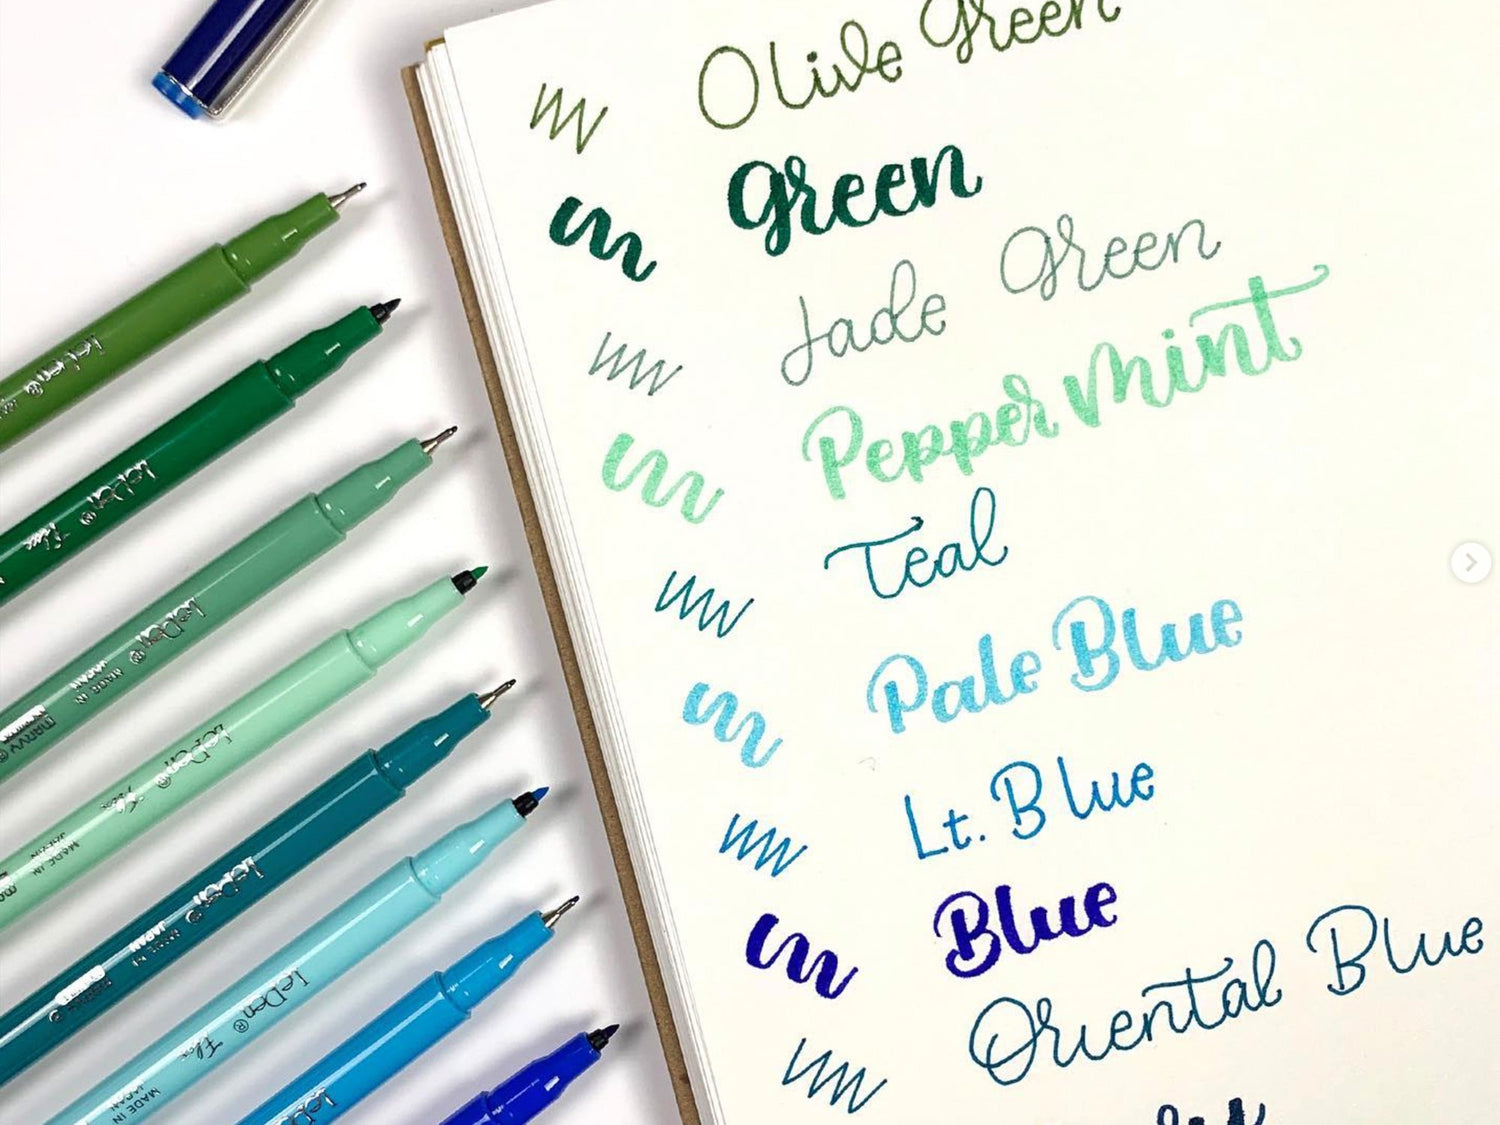 Olive Green
Green
Jade Green
Peppermint
Teal
Pale Blue
Lt. Blue
Blue
Oriental Blue
LePen®
LePen® Flex
LePen® MADE IN JAPAN MARVY®
LePen® Flex MADE IN JAPAN
LePen® MADE IN JAPAN
LePen® Flex MADE IN JAPAN
LePen®